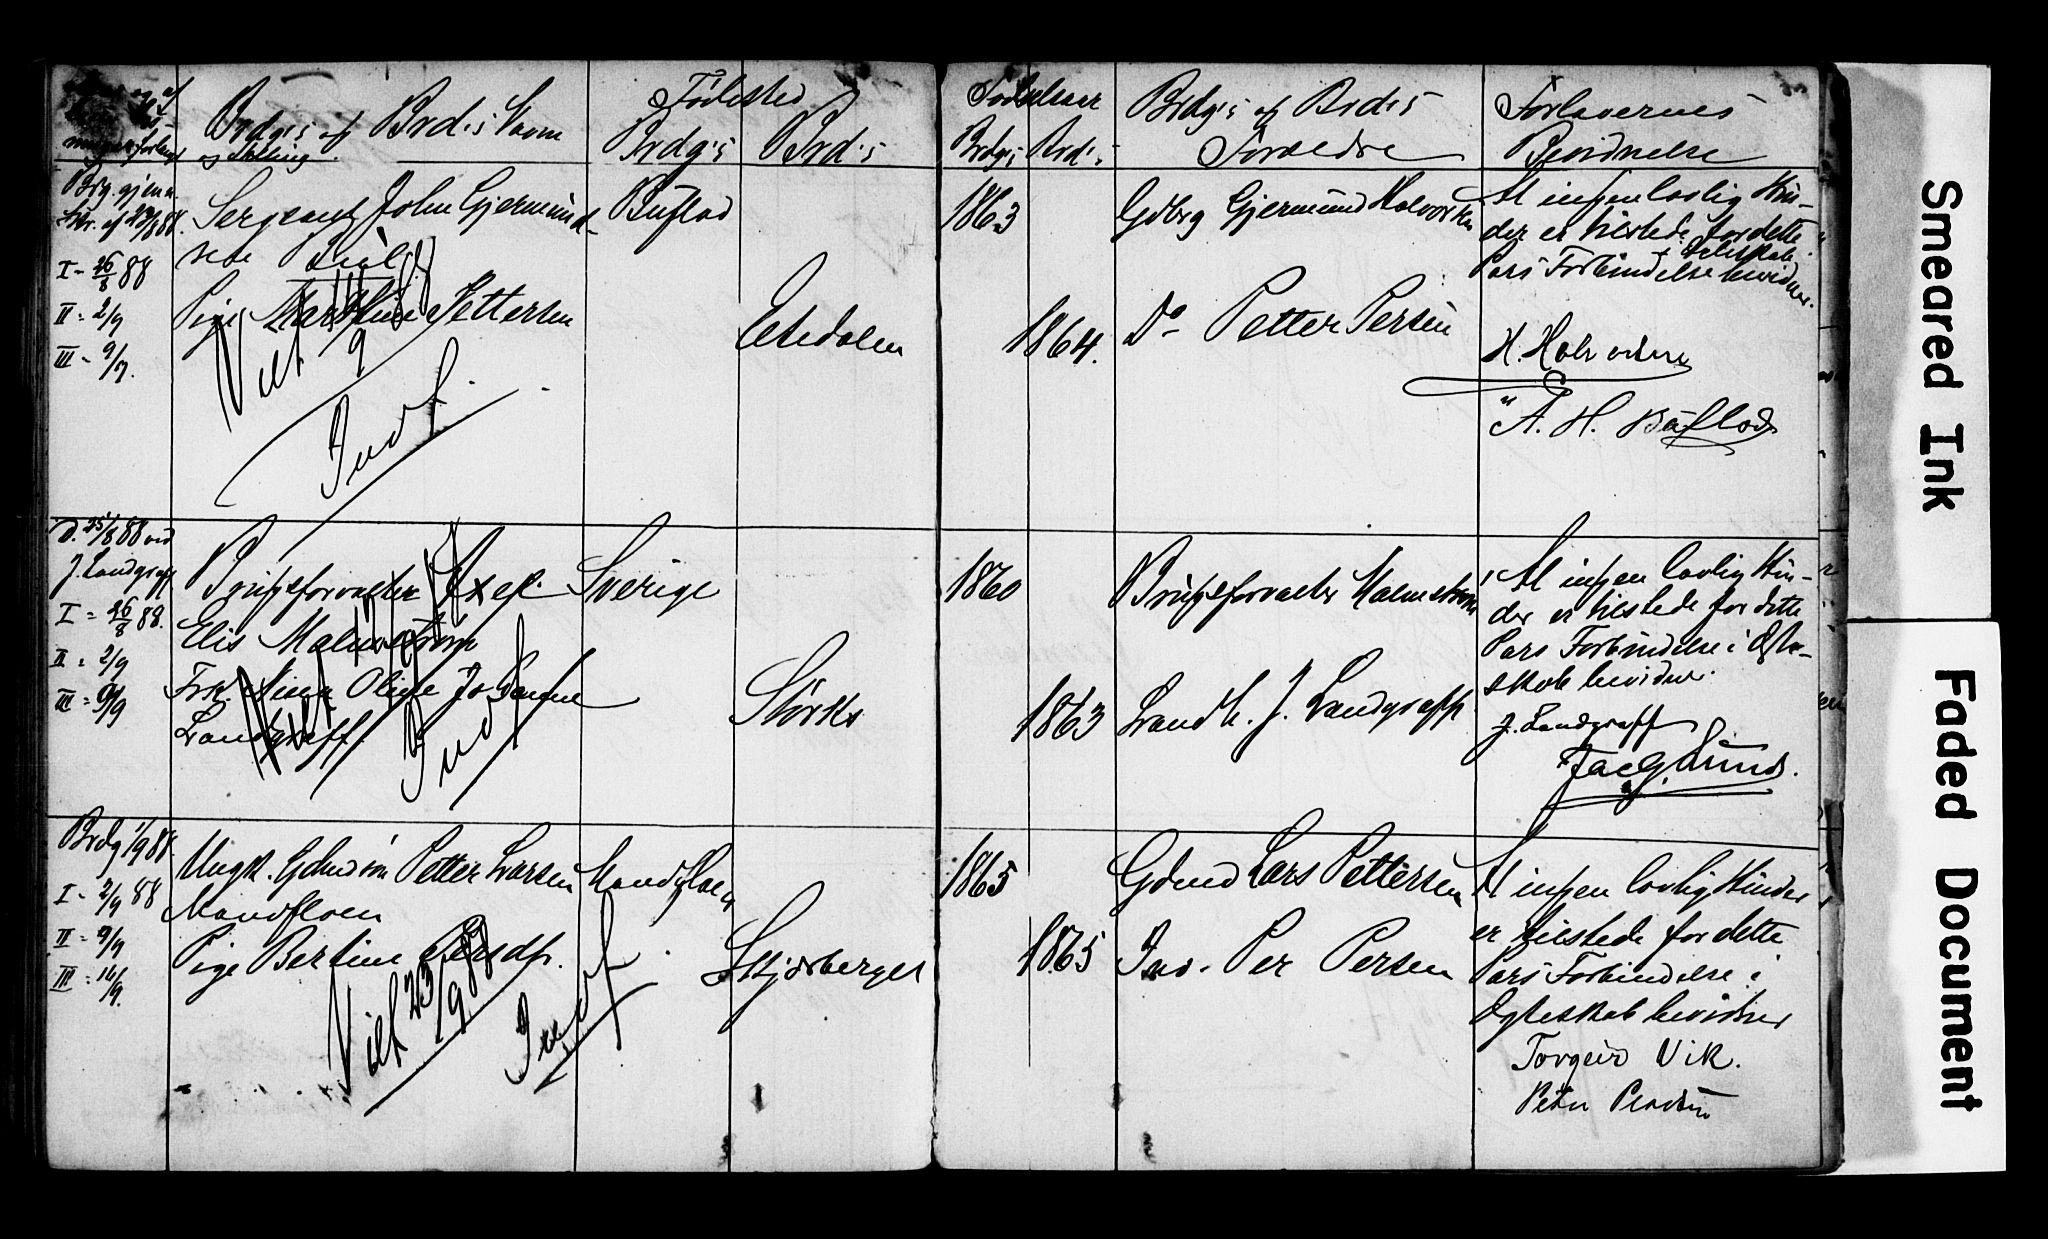 Brdg.s og Brd.s Navn
og Stilling.
Fødested
Brdg.s
Brd.s
Fødselsaar
Brdg.s Brd.s
Brdg.s og Brd.s
Forældre
Forlovernes
Bevidnelse
Brg. gjenn.
Skr. af 23/8 88.
I - 26/8 88
II - 2/9
III - 9/9.
Sergeant John Gjermund-
sen
Pige Marthine Pettersen
Viet
Indf.
Buflod
Ersdalen
1863
1864.
Gdbrg Gjermund Halvorsen
Do Petter Persen
At ingen lovlig Hin-
der er tilstede for dette
Pars Forbindelse i Ægteskab bevidner.
H. Halvorsen
A. H. Buflod
D. 25/8 88 ved
J. Landgraff
I - 26/8 88.
II - 2/9
III - 9/9
Brugsforvalter Axel
Elis Malmstrøm
Frk. Nina Oline Johanne
Landgraff.
Viet
Indf
Sverige
Størks
1860
1863
Brugsforvalter Malmstrøm
Landh. J. Landgraff
At ingen lovlig Hin-
der er tilstede for dette
Pars Forbindelse i Ægte-
skab bevidner.
J. Landgraff
Jac G. Lund.
Brdg 1/9 88.
I - 2/9 88
II - 9/9
III - 16/9.
Ungk. Gdmdsøn Petter Larsen
Mandfloen
Pige Bertine Persdt.
Viet 23/9 88
Indf
Mandfloen
Skjærberget
1865
1865
Gdmd Lars Pettersen
Ind. Per Persen
At ingen lovlig Hinder
er tilstede for dette
Pars Forbindelse i
Ægteskab bevidner
Torgeir Vik.
Smeared Ink
Faded Document